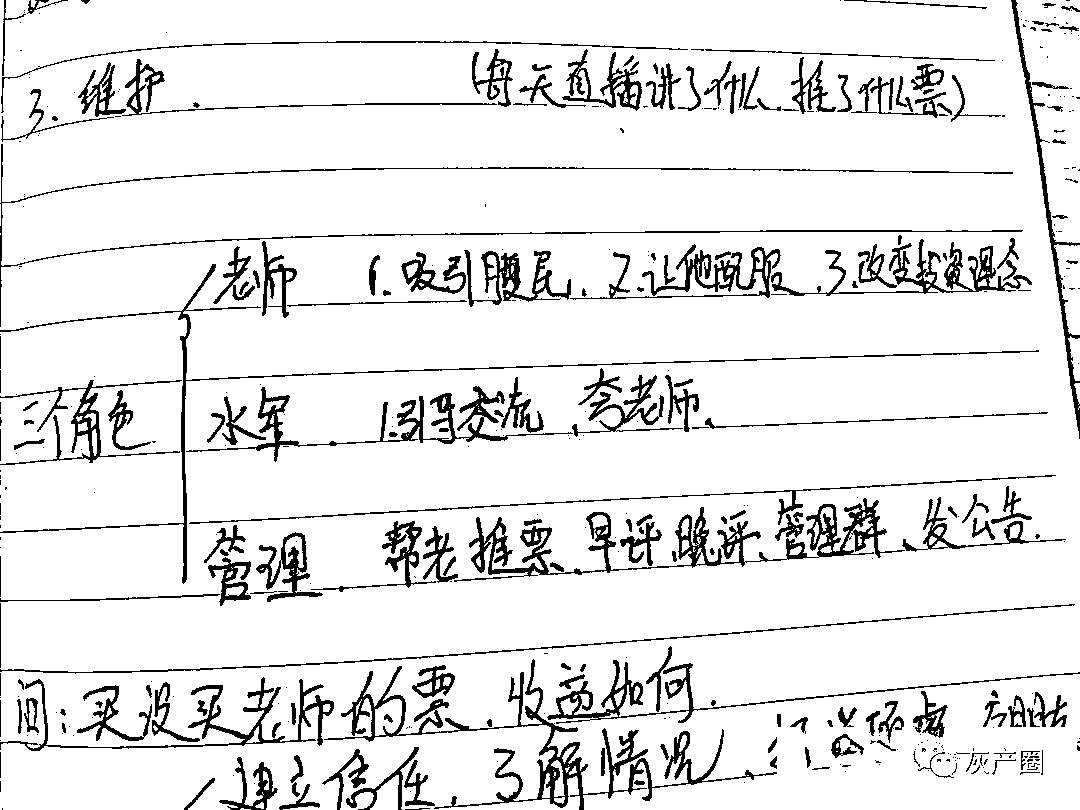 3、维护. (每天直播讲了什么 推了什么票)
老师 1.吸引股民、2.让他配服、3.改变投资理念
三个角色
水军. 1.引导交流、夸老师、
管理. 帮老推票、早评、晚评、管理群、发公告.
问:买没买老师的票、收益如何.
建立信任、了解情况、
灰产圈